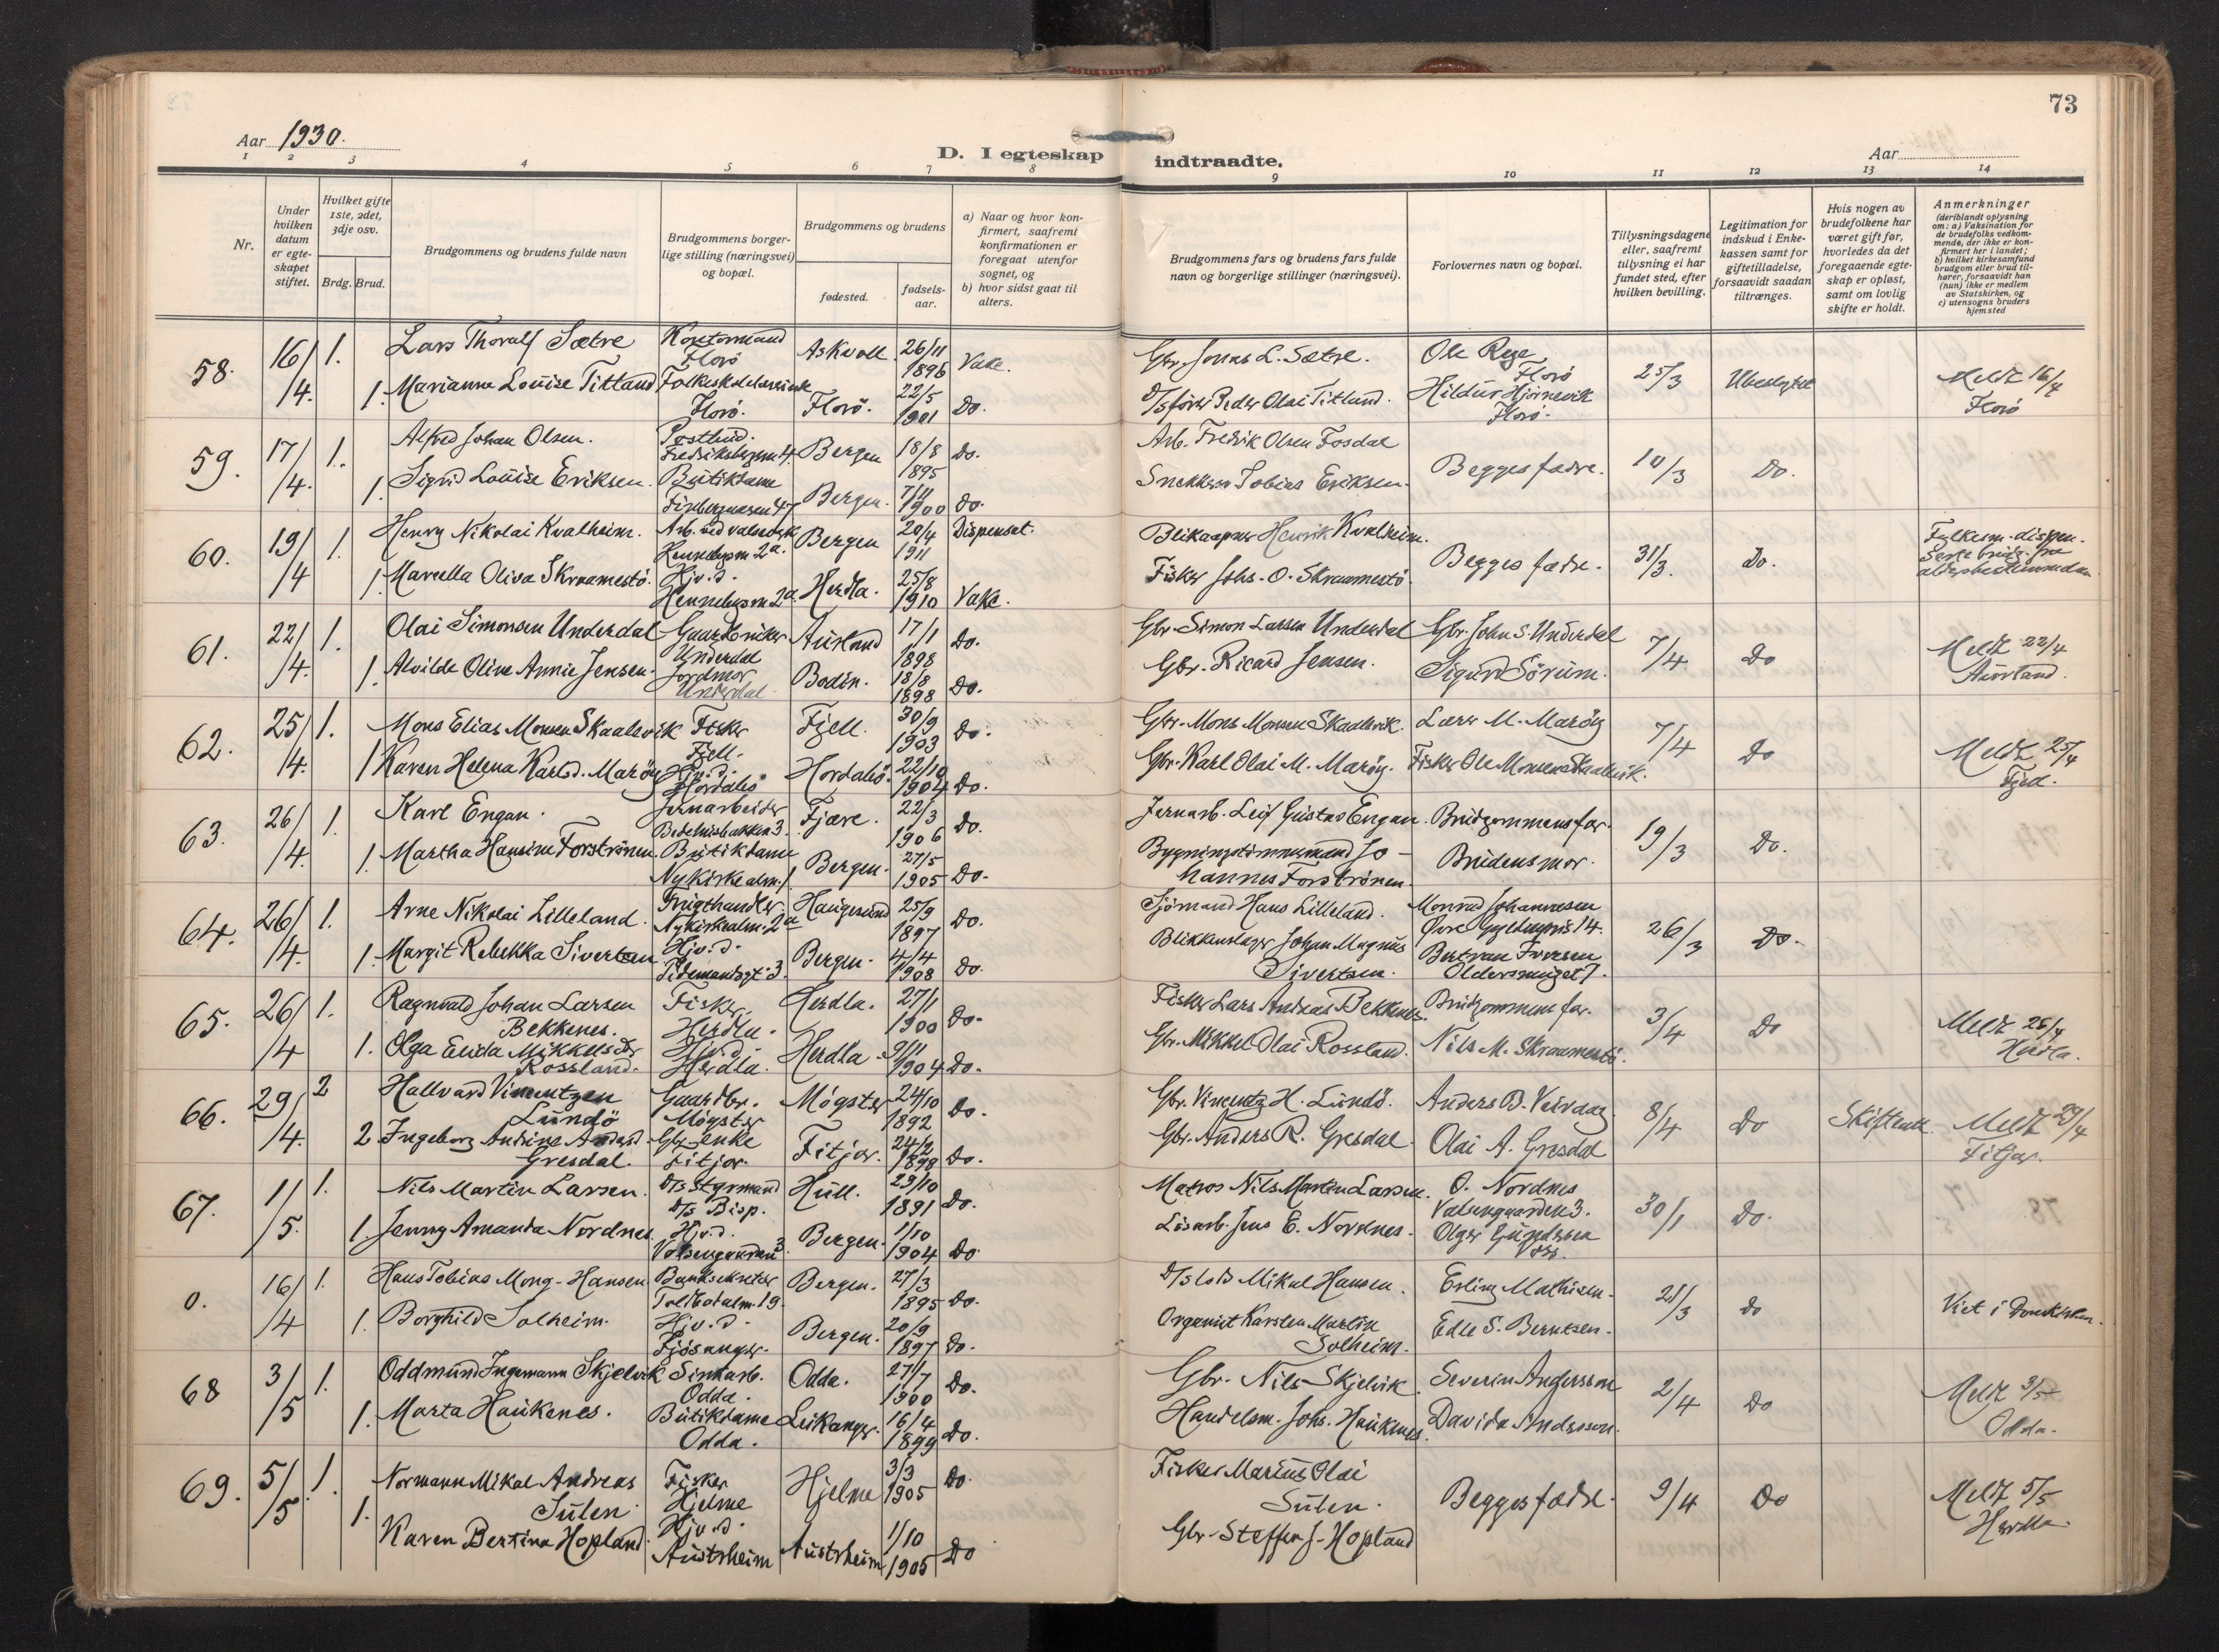 73
Aar 1930.
D. I egteskap indtraadte.
Aar
1 2 3 4 5 6 7 8 9 10 11 12 13 14
Nr.
Under hvilken datum er egte-skapet stiftet.
Hvilket gifte 1ste, 2det, 3dje osv.
Brdg. Brud.
Brudgommens og brudens fulde navn
Brudgommens borger-lige stilling (næringsvei) og bopæl.
Brudgommens og brudens
fødested.
fødsels-aar.
a) Naar og hvor kon-firmert, saafremt konfirmationen er foregaat utenfor sognet, og
b) hvor sidst gaat til alters.
Brudgommens fars og brudens fars fulde navn og borgerlige stillinger (næringsvei).
Forlovernes navn og bopæl.
Tillysningsdagene eller, saafremt tillysning ei har fundet sted, efter hvilken bevilling.
Legitimation for indskud i Enke-kassen samt for giftetilladelse, forsaavidt saadan tiltrænges.
Hvis nogen av brudefolkene har været gift før, hvorledes da det foregaaende egte-skap er opløst, samt om lovlig skifte er holdt.
Anmerkninger
(deriblandt oplysning om: a) Vaksination for de brudefolks vedkom-mende, der ikke er kon-firmert her i landet; b) hvilket kirkesamfund brudgom eller brud til-hører, forsaavidt han (hun) ikke er medlem av Statskirken, og c) utensogns bruders hjemsted
58. 16/4. 1. Lars Thoralf Sætre Kontormand Florø Askvoll 26/11 1896 Vake. Gbr. Jonas L. Sætre. Ole Rege Florø 25/3 Ubeslegtet Meldt 16/4 Florø
1. Marianne Louise Titland Folkeskolelærerinde Florø. Florø. 22/5 1901 Do. D/sfører Peder Olai Titland. Hildur Hjørnevik Florø.
59. 17/4. 1. Alfred Johan Olsen. Postbud. Fredriksbergsm 4. Bergen 18/8 1895 Do. Arb. Fredrik Olsen Fosdal Begges fædre. 10/3 Do.
1. Sigrid Louise Eriksen. Butikdame Bergen. 7/11 1900 Do. Snekker Tobias Eriksen.
60. 19/4 1. Henry Nikolai Kvalheim. Bergen 20/4 1911 Dispensat. Henrik Kvalheim. Begges fædre. 31/3. Do. Fylkesm. dispen.
1. Marcella Oliva Skraamestø. Hjv.d. Herdla. 25/8 1910 Vake. Fisker Johs. O. Skraamestø.
61. 22/4. 1. Olai Simonsen Underdal Gaardbruker Underdal Aurland 17/1 1898 Do. Gbr. Simon Larsen Underdal Gbr. John S. Underdal 7/4. Do Meldt 22/4 Aurland.
1. Alvilde Oline Annie Jensen. Jordmor Underdal. Bodin. 18/8 1898 Do. Gbr. Ricard Jensen. Sigurd Sörum.
62. 25/4. 1. Mons Elias Monsen Skaalevik Fisker Fjell. Fjell. 30/9 1903 Do. Gbr. Mons Monsen Skaalevik. Lærer M. Marøy 7/4 Do Meldt 25/4 Fjell.
1 Karen Helena Karlsd. Marøy Hjv.d. Hordabö Hordabö. 22/10 1904 Do. Gbr. Karl Olai M. Marøy. Fisker Ole Monsen Skaalevik.
63. 26/4. 1. Karl Engan. Jernarbeider Fjære. 22/3 1906 Do. Jernarb. Leif Gustav Engan. Brudgommens far. 19/3 Do.
1. Martha Hansine Forströnen. Butikdame Nykirkealm. 1. Bergen. 27/5 1905 Do. Bygningstömmermand Johannes Forströnen. Brudens mor.
64. 26/4. 1. Arne Nikolai Lilleland. Frugthandler Nykirkealm. 2a Haugesund 25/9 1897 Do. Sjömand Hans Lilleland. Monrad Johannesen Øvre Gyldenpris 14. 26/3 Do.
1. Margit Rebekka Sivertsen Hjv.d. Tidemandsgt. 3. Bergen. 4/4 1908 Do. Blikkenslager Johan Magnus Sivertsen. Bertran Iversen
65. 26/4 1. Ragnvald Johan Larsen Bekkenes. Fisker. Herdla. Herdla. 27/1 1900 Do. Fisker Lars Andreas Bekkenes. Brudgommens far. 3/4 Do Meldt 26/4 Herdla.
1. Olga Elida Mikkelsdr Rossland. Hjv.d. Herdla. Herdla 9/11 1904 Do. Gbr. Mikkel Olai Rossland. Nils M. Skraamestö.
66. 29/4. 2 Hallvard Vincentzen Lundö Gaardbr. Mögster Mögster 24/10 1892 Do. Gbr. Vincentz H. Lundö. Anders B. Veivaag 8/4 Do Skifteatt. Meldt 29/4 Fitjar.
2 Ingeborg Andrine Andersd. Gresdal. Gbr.-enke Fitjar. Fitjar. 24/2 1898 Do. Gbr. Anders R. Gresdal. Olai A. Gresdal
67. 1/5. 1. Nils Martin Larsen. D/s Styrmand D/s Bisp. Hull. 29/10 1891 Do. Matros Nils Martin Larsen. O. Nordnes Valsengaarden 3. 30/1 Do.
1. Jenny Amanda Nordnes. Hjv.d. Valsengaarden 3. Bergen. 1/10 1904 Do Lösarb. Jens E. Nordnes. Olger Gundersen Voss.
0. 16/4 1. Hans Tobias Mong-Hansen Banksekretær Toldbodalm. 19. Bergen. 27/3 1895 Do. D/s lods Mikal Hansen. Erling Mathisen. 21/3 Do Viet i Domkirken.
1. Borghild Solheim. Hjv.d. Fjösanger. Bergen. 20/9 1897 Do. Organist Karsten Martin Solheim. Edle S. Berntsen.
68 3/5 1. Oddmund Ingemann Skjelvik Sinkarb. Odda. Odda. 27/7 1900 Do. Gbr. Nils Skjelvik Severin Andersson 2/4 Do Meldt 3/5 Odda.
1. Marta Haukenes. Butikdame Odda. Leikanger. 16/4 1899 Do. Handelsm. Johs. Haukenes. Davida Andersson.
69. 5/5. 1. Normann Mikal Andreas Sulen Fisker Hjelme Hjelme 3/3 1905 Do. Fisker Marius Olai Sulen. Begges fædre. 9/4 Do Meldt 5/5 Herdla.
1. Karen Bertina Hopland Hjv.d. Austrheim Austrheim 1/10 1905 Do Gbr. Steffen J. Hopland